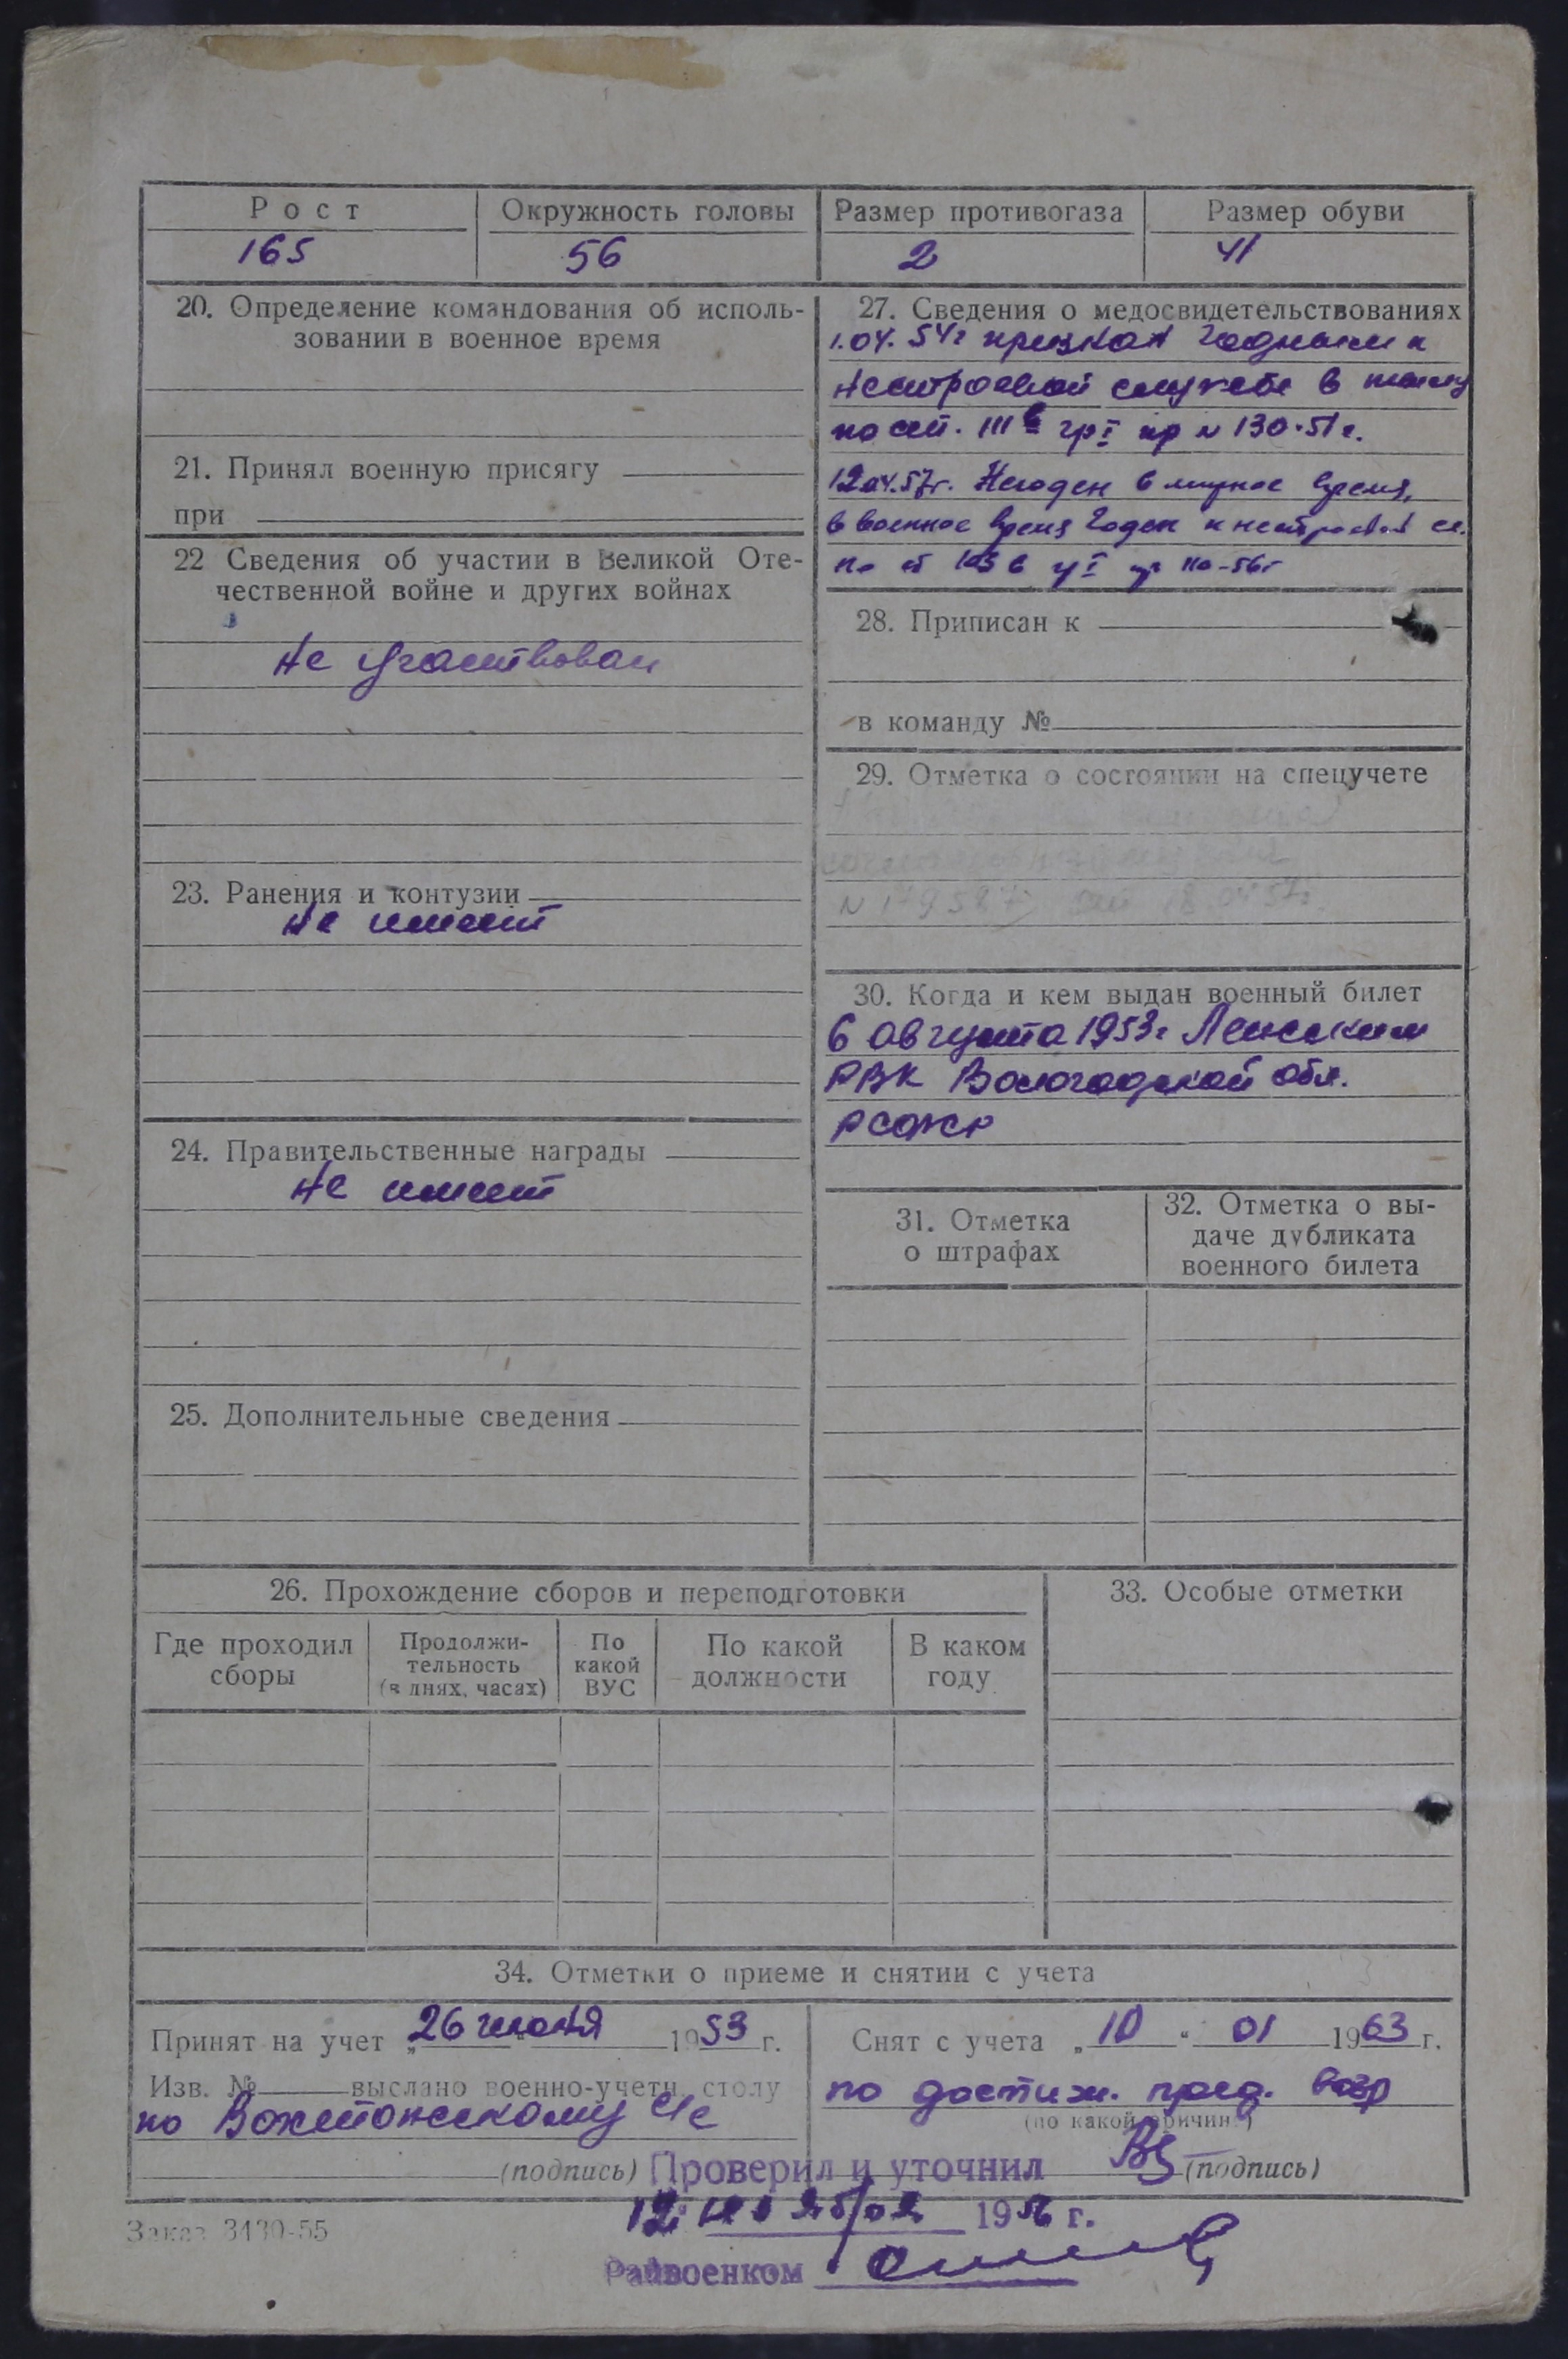 Рост
Окружность головы
Размер противогаза
Размер обуви
165
56
2
41
20. Определение командования об исполь-
зовании в военное время
21. Принял военную присягу
при
22 Сведения об участии в Великой Оте-
чественной войне и других войнах
Не участвовал
23. Ранения и контузии
Не имеет
24. Правительственные награды
Не имеет
25. Дополнительные сведения
27. Сведения о медосвидетельствованиях
1.04.54г признан годным к
нестроевой службе в
по ст. III в гр I пр N 130-51г.
12.04.57г. Негоден в мирное время,
в военное время годен к нестроевой сл.
по ст 103 в гр I пр 110-56г
28. Приписан к
в команду №
29. Отметка о состоянии на спецучете
N 179587 18 04 57г.
30. Когда и кем выдан военный билет
6 августа 1953г Лежским
РВК Вологодской обл.
РСФСР
31. Отметка
о штрафах
32. Отметка о вы-
даче дубликата
военного билета
26. Прохождение сборов и переподготовки
Где проходил
сборы
Продолжи-
тельность
(в днях, часах)
По
какой
ВУС
По какой
должности
В каком
году
33. Особые отметки
34. Отметки о приеме и снятии с учета
Принят на учет „26 июня 1953 г.
Изв. № выслано военно-учетн. столу
по Вохтожскому с/с
(подпись)
Снят с учета „10 “ 01 1963 г.
по достиж. пред. возр
(по какой причине)
(подпись)
Проверил и уточнил
12 1956 г.
Райвоенком
Заказ 3430-55